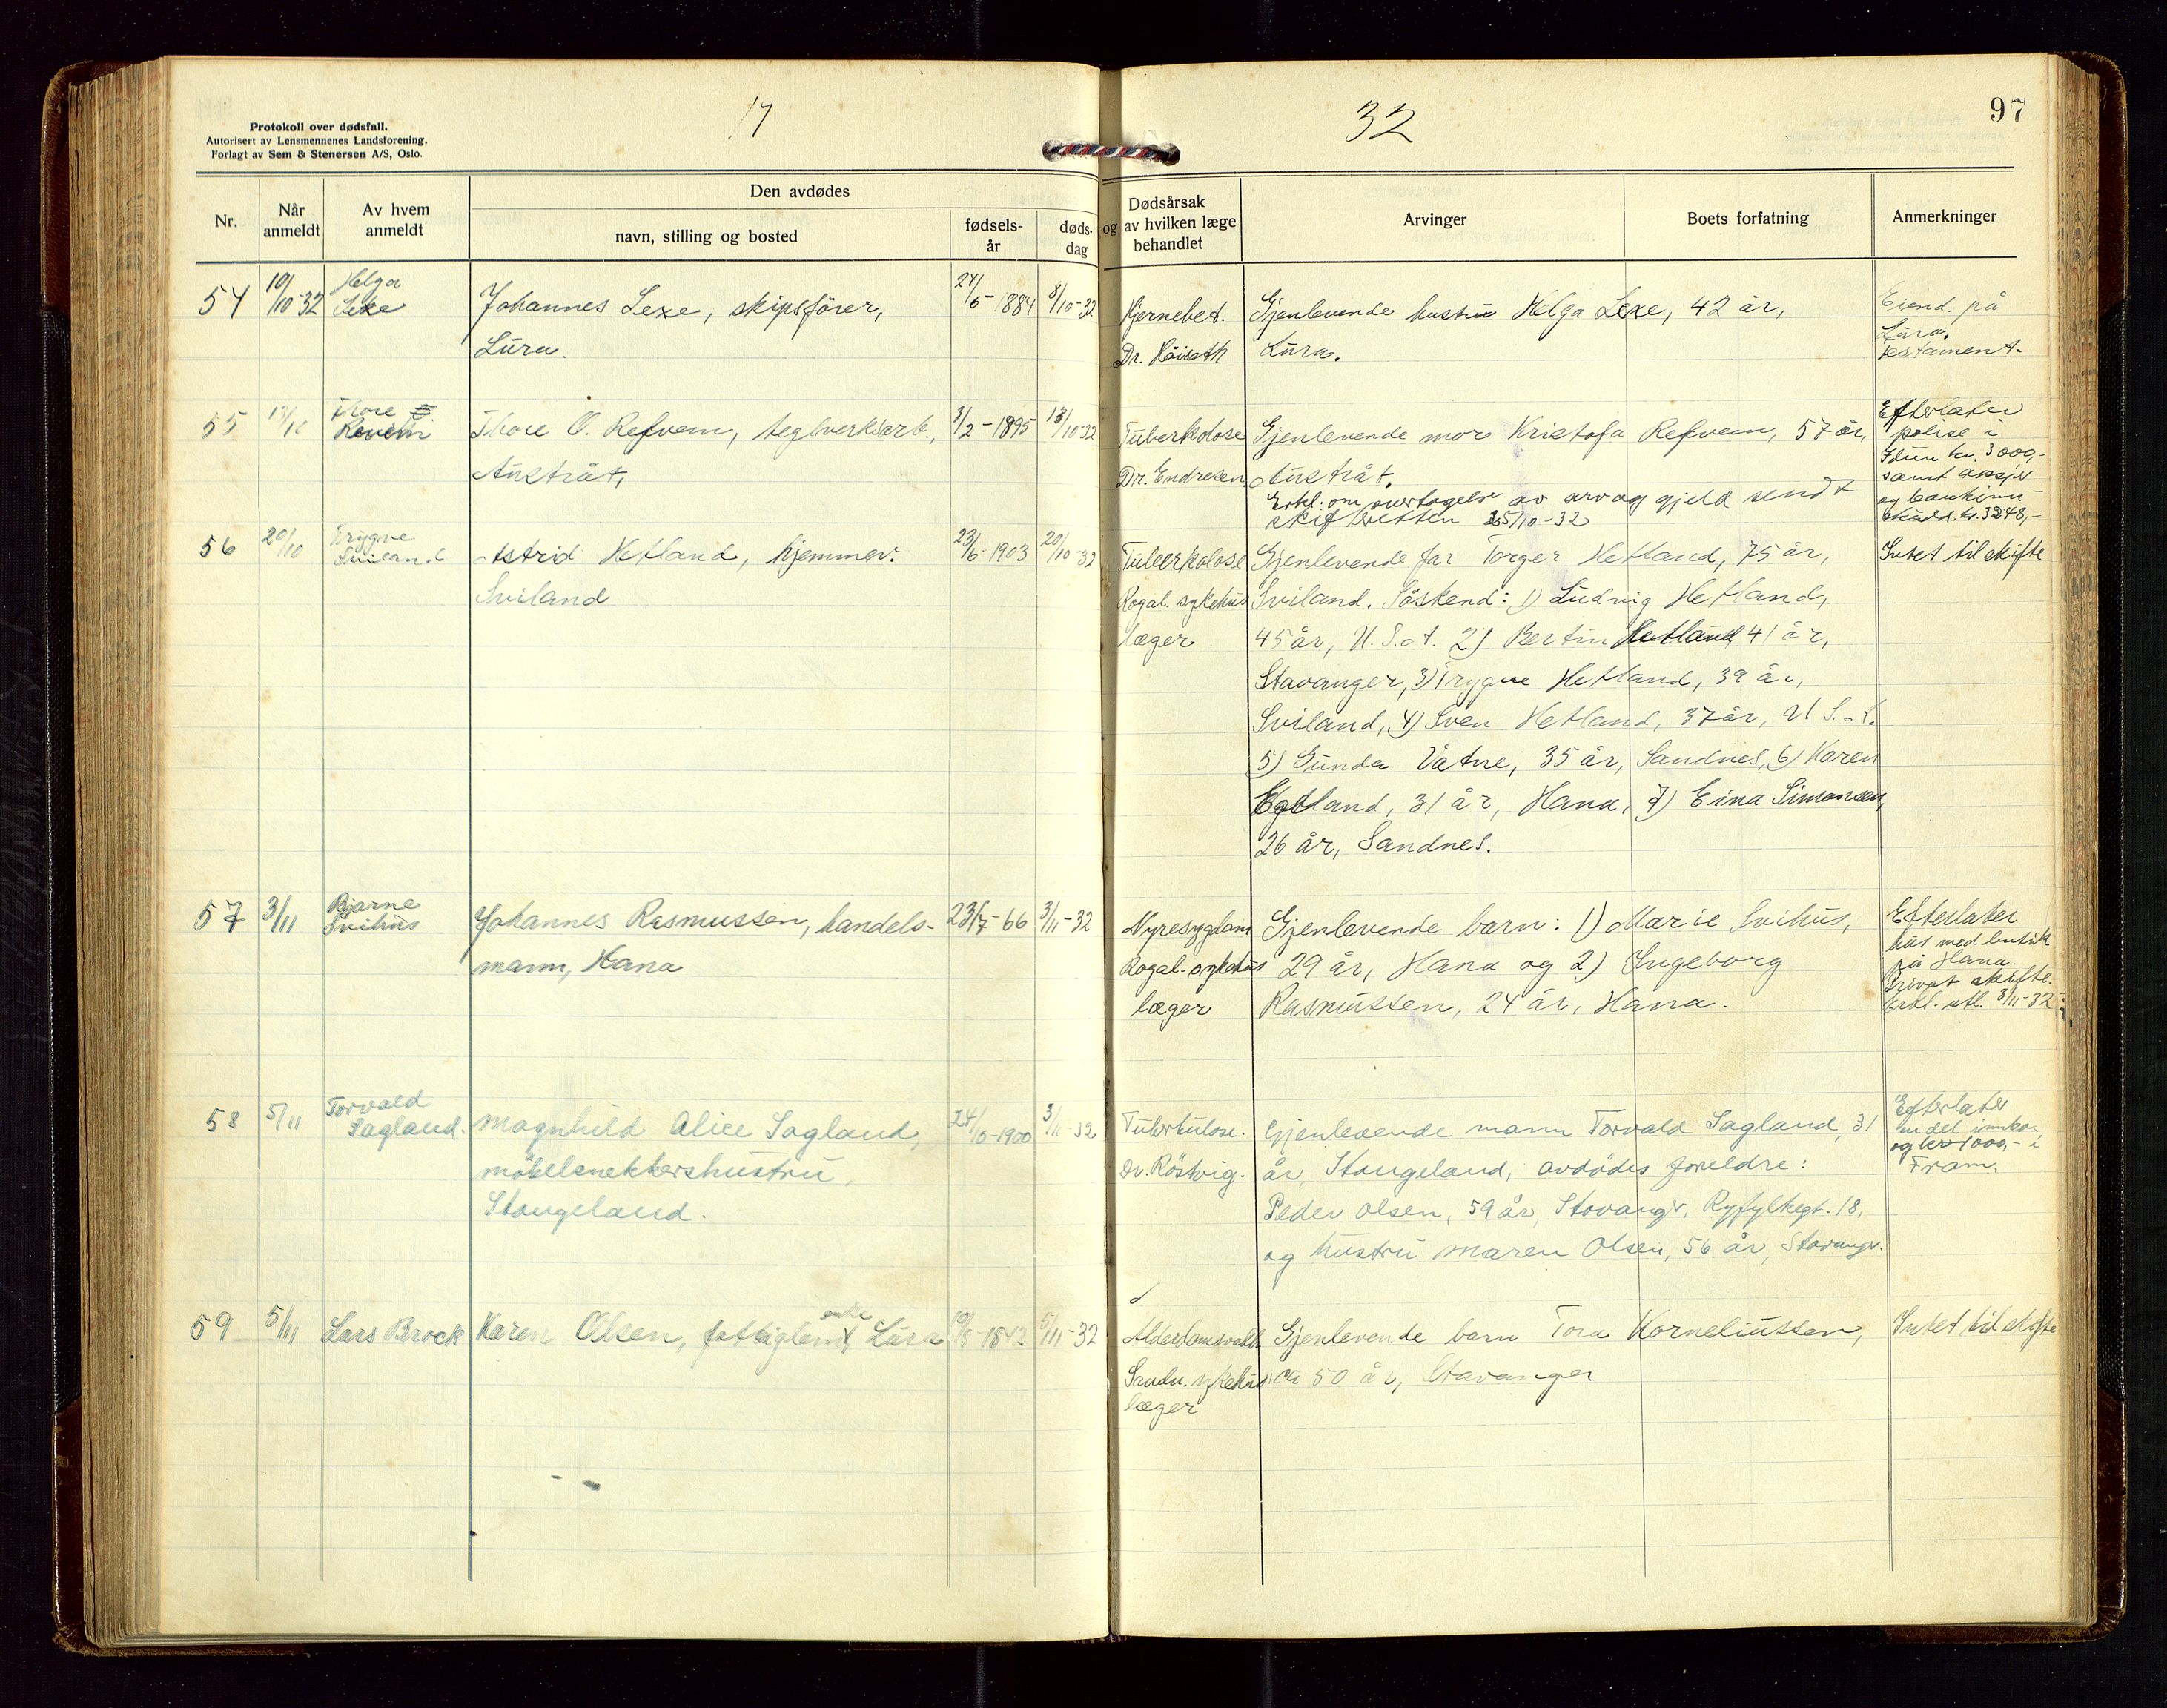 Protokoll over dødsfall.
Autorisert av Lensmennenes Landsforening.
Forlagt av Sem & Stenersen A/S, Oslo.
17
32
97
Nr.
Når anmeldt
Av hvem anmeldt
Den avdødes
navn, stilling og bosted
fødsels-år
døds-dag
Dødsårsak
og av hvilken læge
behandlet
Arvinger
Boets forfatning
Anmerkninger
54 10/10-32 Helga Lexe
Johannes Lexe, skipsfører,
Lura.
24/5-1884 8/10-32
Hjernebet.
Dr. Høiseth
Gjenlevende hustru Helga Lexe, 42 år,
Lura.
Eiend. på
Lura.
Testament.
55 13/10 Thore
Thore O. Refvem, teglverksarb.,
Austråt,
3/2-1895 13/10-32
Tuberkolose
Dr. Endresen
Gjenlevende mor Kristofa Refvem, 57 år,
Austråt.
Erkl. om overtagelse av arv og gjeld sendt
skifteretten 25/10-32
Efterlater
polise i
Idun kr. 3000,-
samt aksjer
og
kr. 3248,-
56 20/10 Trygve
Sviland
Astrid Hetland, hjemmev.
Sviland
23/6-1903 20/10-32
Tuberkolose
Rogal. sykehus
læger
Gjenlevende far Torger Hetland, 75 år,
Sviland. Søskend: 1) Ludvig Hetland,
45 år, U.S.A. 2) Bertin Hetland, 41 år,
Stavanger, 3) Trygve Hetland, 39 år,
Sviland, 4) Sven Hetland, 37 år, U.S.A.
5) Gunda Våtne, 35 år, Sandnes, 6) Karen
Egeland, 31 år, Hana, 7) Eina Simonsen,
26 år, Sandnes.
Intet til skifte
57 3/11 Bjarne
Svihus
Johannes Rasmussen, handels-
mann, Hana
23/7-66 3/11-32
Nyresygdom
Rogal. sykehus
læger
Gjenlevende barn: 1) Marie Svihus,
29 år, Hana og 2) Ingeborg
Rasmussen, 24 år, Hana.
Efterlater
hus med butik
på Hana.
Privat skifte.
Erkl. utl. 3/11-32
58 5/11 Torvald
Sagland.
Magnhild Alice Sagland,
møbelsnekkershustru,
Stangeland.
3/11-32
Tuberkulose.
Dr. Röstvig.
Gjenlevende mann Torvald Sagland, 31
år, Stangeland, avdödes foreldre:
Peder Olsen, 59 år, Stavangr, Ryfylkegt. 18,
og hustru Maren Olsen, 56 år, Stavangr.
Efterlater
en del innbo.
og kr 1000,- i
Fram.
59 5/11 Lars Brock
enke
Karen Olsen, fattiglem, Lura
5/11-32
Sandn. sykehus
læger
Gjenlevende barn Tora Korneliussen,
ca 50 år, Stavanger
Intet til skifte